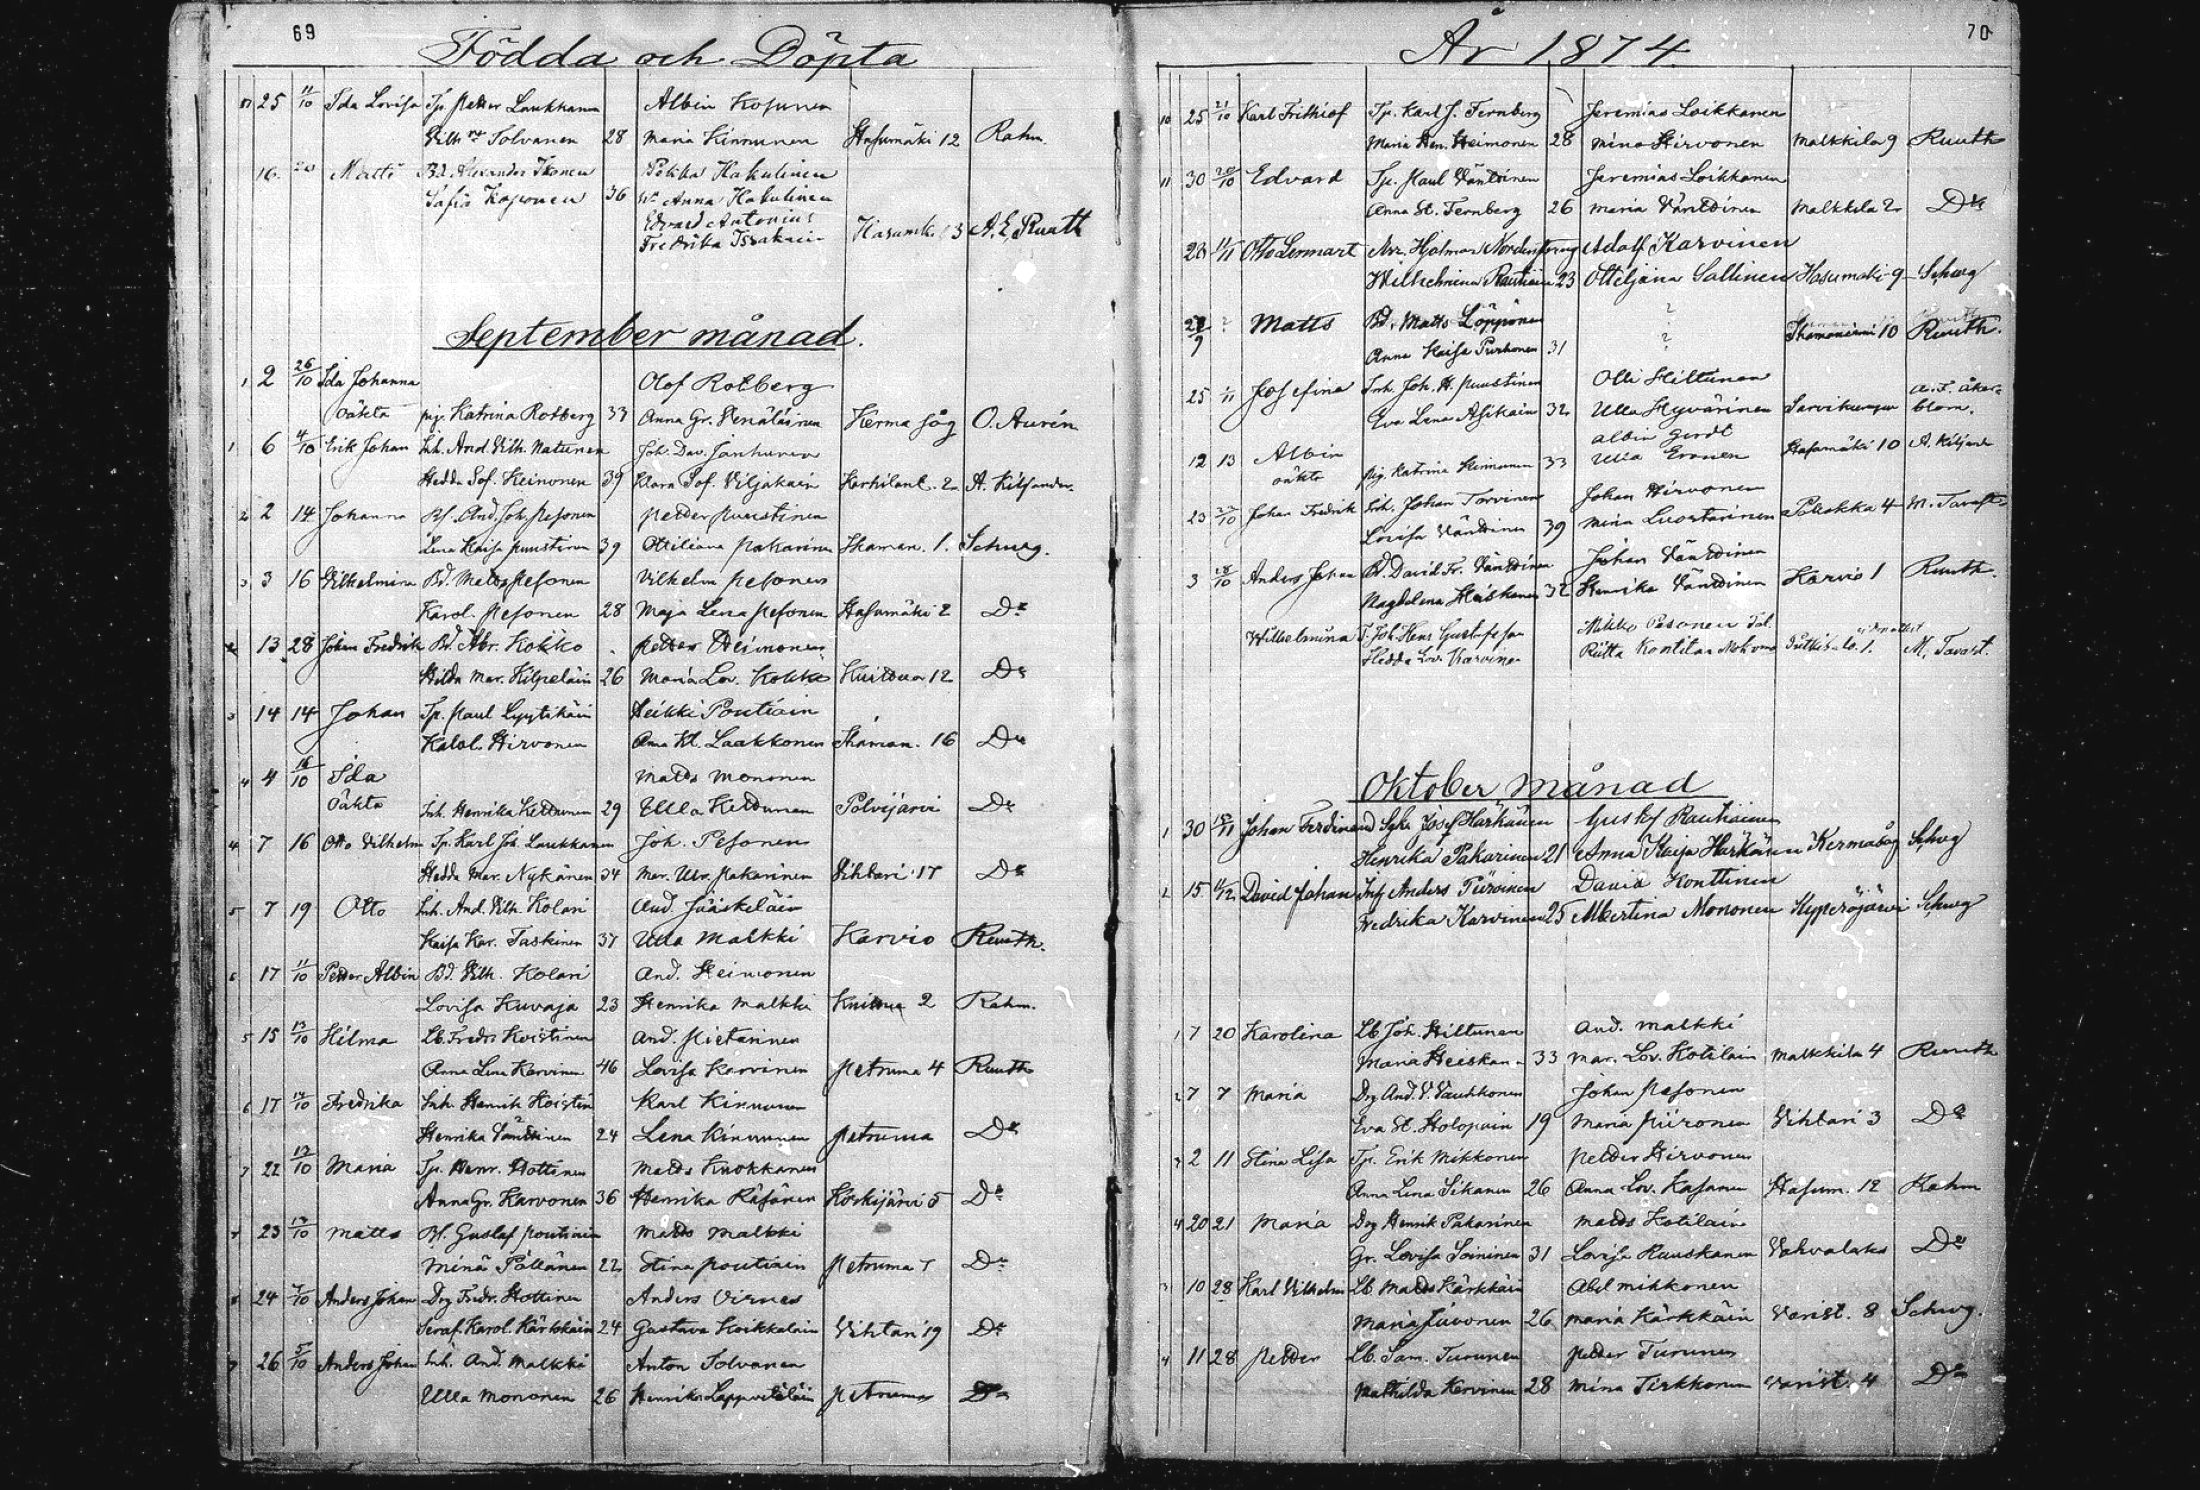 69
Födda och Döpta
25 11/10 Ida Lovisa Tp. Petter Laukkanen Albin Kosunen
Vilh. Tolvanen 28 Maria Kinnunen Hasumäki 12 Rahm.
16 20 Matts Bd. Alexander Ikonen Pekka Hakulinen
Sofia Kaponen 36 Anna Hakulinen
Edvard Antonius
Fredrika Issakain Hasumk. 3 A. E. Ruuth
September månad.
1 2 26/10 Ida Johanna Olof Rotberg
oäkta pig. Katrina Rotberg 33 Anna Gr. Kerma såg O. Aurén
1 6 4/10 Erik Johan Inh. And. Vilh. Natunen Joh. Dav. Janhunen
Hedda Sof. Keinonen 39 Klara Sof. Viljakain Karhilant. 2 A. Kiljander
2 2 14 Johanna And. Joh. Pesonen Petter Puustinen
Lena Kaisa Puustinen 39 Ottiliana Pakarinen Ihaman. 1. Schwg.
3 3 16 Vilhelmina Bd. Matts Pesonen Vilhelm Pesonen
Karol. Pesonen 28 Maja Lena Pesonen Hasumäki 2 Do
2 13 28 Johan Fredrik Bd. Abr. Kokko Petter Heimonen
Hilda Mar. Kilpeläin 26 Maria Lov. Kokko Kuittua 12 Do
3 14 14 Johan Tp. Paul Lyytikäin Heikki Poutiain
Karol. Hirvonen Anna Kl. Laakkonen Ihaman. 16 Do
4 4 16/10 Ida Matts Mononen
Oäkta Inh. Henrika Kettunen 29 Ulla Kettunen Polvijärvi Do
4 7 16 Otto Vilhelm Tp. Karl Joh. Laukkanen Joh. Pesonen
Hedda Mar. Nykänen 34 Mar. Ulr. Pakarinen Vihtari 17 Do
5 7 19 Otto Inh. And. Vilh. Kolari And. Jääskeläin
Kaisa Kar. Taskinen 37 Ulla Malkki Karvio Ruuth.
6 17 11/10 Petter Albin Bd. Vilh. Kolari And. Heimonen
Lovisa Kuvaja 23 Henrika Malkki Kuittua 2 Rahm.
5 15 13/10 Hilma Lb. Fredr. Koistinen And. Pietarinen
Anna Lena Karvinen 46 Lovisa Karvinen Petruma 4 Ruuth
6 17 12/10 Fredrika Inh. Henrik Hoistin Karl Kinnunen
Henrika Vänttinen 24 Lena Kinnunen Petruma Do
7 22 12/10 Maria Tp. Henr. Hottinen Matts Kuokkanen
Anna Gr. Karvonen 36 Henrika Räsänen Koskijärvi 5 Do
23 12/10 Matts Gustaf Poutiain Matts Malkki
Mina Pöllänen 22 Stina Poutiain Petruma 7 Do
8 24 7/10 Anders Johan Drg Fredr. Hottinen Anders Virnes
Seraf. Karol. Kärkkäin 24 Gustava Koikkalain Vihtari 19 Do
9 26 5/10 Anders Johan Inh. And. Malkki Anton Tolvanen
Ulla Mononen 26 Henrika Lappveteläin Petruma Do
År 1874.
70
10 25 21/10 Karl Frithiof Tp. Karl J. Fernberg Jeremias Loikkanen
Maria Hen. Heimonen 28 Mina Hirvonen Malkkila 9 Ruuth
11 30 20/10 Edvard Tp. Paul Vänttinen Jeremias Loikkanen
Anna St. Fernberg 26 Maria Vänttinen Malkkila 2 Do
20 11/11 Otto Lennart Hjalmar Nordenstreng Adolf Karvinen
Wilhelmina Rautiain 23 Ottiljana Sallinen Hasumäki 9 Schwg
22/9 ? Matts Bd. Matts Löppönen ?
Anna Kaisa Purhonen 31 ? Ihamaniemi 10 Ruuth.
25 1/11 Josefina Inh. Joh. H. Puustinen Olli Hiltunen A. F. Åker-
Eva Lena Asikain 32 Ulla Hyvärinen Sarvikumpu blom.
12 13 Albin Albin Gerdt
oäkta pig. Katrina Kinnunen 33 Ulla Eronen Hasumäki 10 A. Kiljand
23 22/10 Johan Fredrik Inh. Johan Torvinen Johan Hirvonen
Lovisa Vänttinen 39 Mina Luostarinen Palokka 4 M. Tavast
3 18/10 Anders Johan Bd. David Fr. Vänttinen Johan Vänttinen
Magdalena Heiskanen 32 Henrika Vänttinen Karvio 1 Ruuth.
Wilhelmina T. Joh. Henr. Gustafsson Mikko Pasonen
Hedda Lov. Karvinen Riitta Kontila M. Tavast.
Oktober månad
1 30 15/11 Johan Ferdinand Josef Härkänen Gustaf Rautiainen
Henrika Pakarinen 21 Anna Kaija Härkänen Kermasåg Schwg
2 15 David Johan Anders Piiroinen David Konttinen
Fredrika Karvinen 25 Albertina Mononen Hyperöjärvi Schwg
1 7 20 Karolina Lb. Joh. Hiltunen And. Malkki
Maria Heiskan 33 Mar. Lov. Kotilain Malkkila 4 Ruuth
2 7 7 Maria Drg And. V. Vaukkonen Johan Pesonen
Eva St. Holopain 19 Maria Piironen Vihtari 3 Do
3 2 11 Stina Lisa Tp. Erik Mikkonen Petter Hirvonen
Anna Lena Sikanen 26 Anna Lov. Kasanen Hasum. 12 Rahm
4 20 21 Maria Drg Henrik Pakarinen Matts Kotilain
Gr. Lovisa Soininen 31 Lovisa Ruuskanen Vahvalaks Do
3 10 28 Karl Vilhelm Lb. Matts Kärkkäin Abel Mikkonen
Maria Juvonen 26 Maria Kärkkäin Varist. 8 Schwg.
4 11 28 Petter Lb. Sam. Turunen Petter Turunen
Mathilda Kervinen 28 Mina Tirkkonen Varist. 4 Do